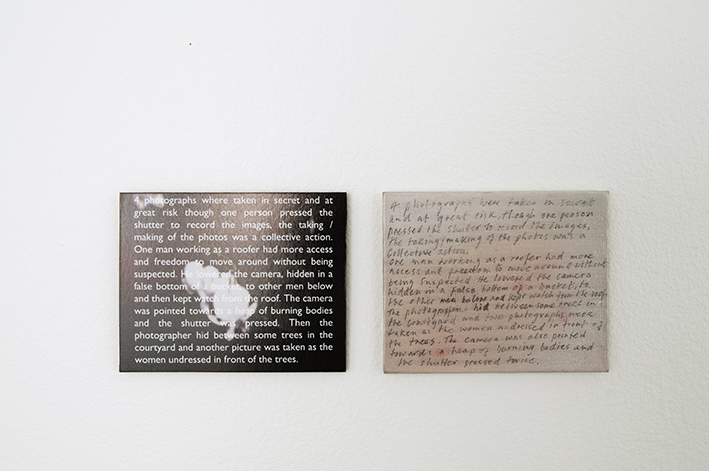 4 photographs where taken in secret and at
great risk though one person pressed the
shutter to record the images, the taking /
making of the photos was a collective action.
One man working as a roofer had more access
and freedom to move around without being
suspected. He lowered the camera, hidden in a
false bottom of a bucket to other men below
and then kept watch from the roof. The camera
was pointed towards a heap of burning bodies
and the shutter was pressed. Then the
photographer hid between some trees in the
courtyard and another picture was taken as the
women undressed in front of the trees.
4 photographs were taken in secret
and at great risk, though one person
pressed the shutter to record the images,
the taking/making of the photos was a
collective action.
One man working as a roofer had more
access and freedom to move around without
being suspected. He lowered the camera
hidden in a false bottom of a bucket, to
the other men below and kept watch from the roof.
The photographer hid between some trees in
the courtyard and two photographs were
taken as the women undressed in front of
the trees. The camera was also pointed
towards a heap of burning bodies and
the shutter pressed twice.